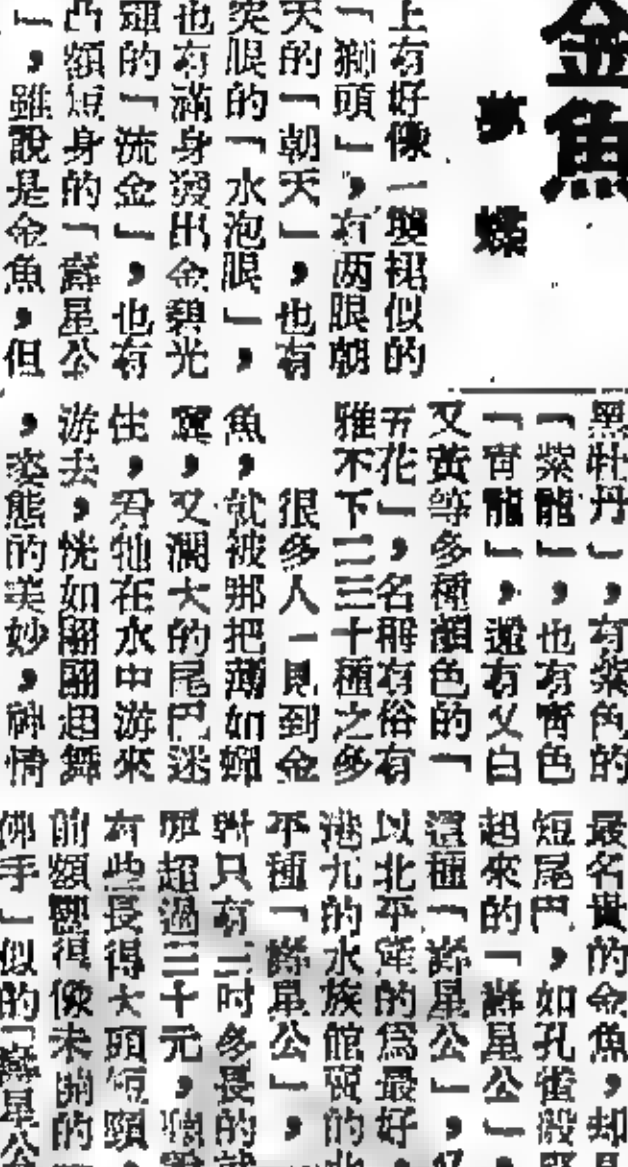 金魚
夢蝶
上有好像一雙裙似的
「獅頭」,有两眼朝
天的「朝天」,也有
突眼的「水泡眼」,
也有滿身發出金碧光
輝的「流金」,也有
凸額短身的「壽星公
」,雖說是金魚,但
黑牡丹」,有紫色的
「紫龍」,也有青色
「青龍」,還有又白
又黃等多種顏色的「
五花」,名稱有俗有
雅不下二三十種之多
很多人一見到金
魚,就被那把薄如蟬
翼,又濶大的尾巴迷
住,看牠在水中游來
游去,恍如翩翩起舞
,姿態的美妙,神情
最名貴的金魚,却
短尾巴,如孔雀般
起來的「壽星公」
這種「壽星公」,
以北平產的為最好,
港九的水族館賣的
平種「壽星公」,
對只有三吋多長的
超過三十元,聽
有些長得大頭短頸,
前額得像未開的
手」似的「壽星公